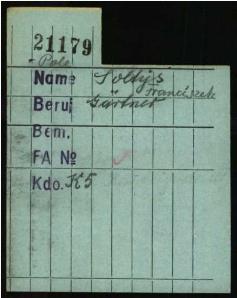 21179
Pole
Name Soltys
Franciszek
Beruf Gärtner
Bem.
FA No
Kdo. K5